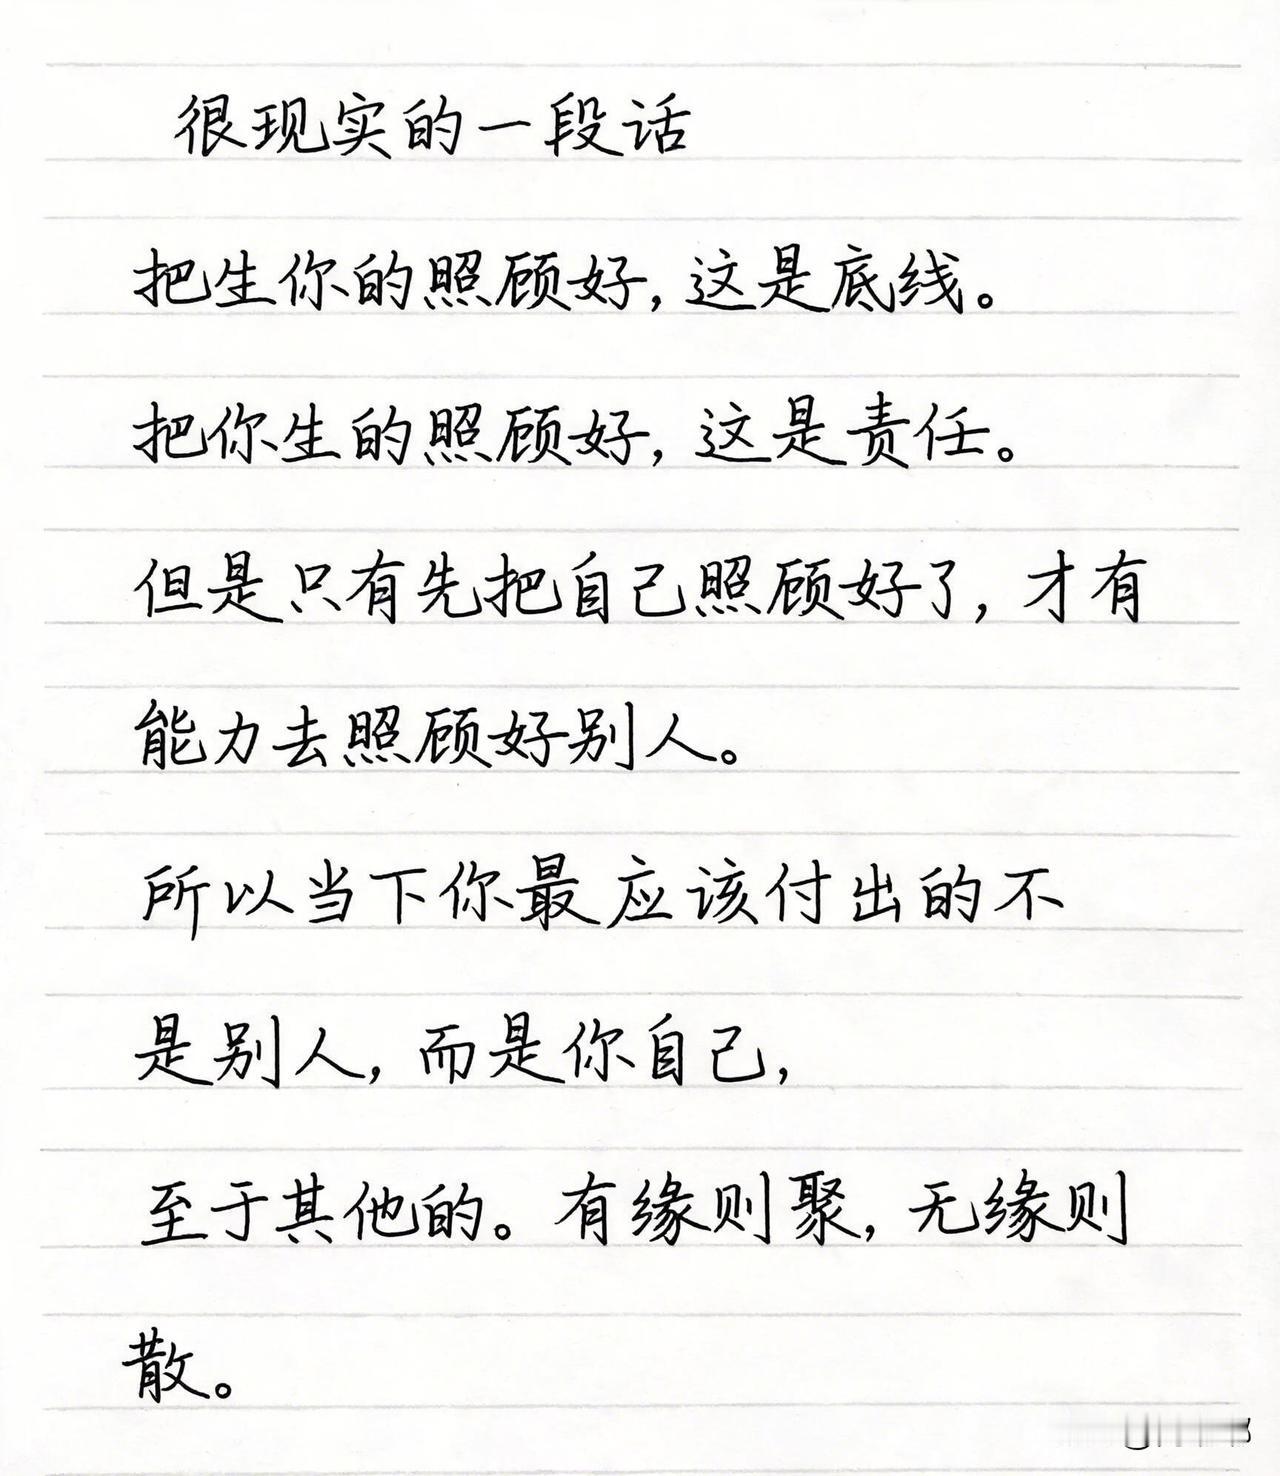 很现实的一段话
把生你的照顾好，这是底线。
把你生的照顾好，这是责任。
但是只有先把自己照顾好了，才有
能力去照顾好别人。
所以当下你最应该付出的不
是别人，而是你自己，
至于其他的。有缘则聚，无缘则
散。